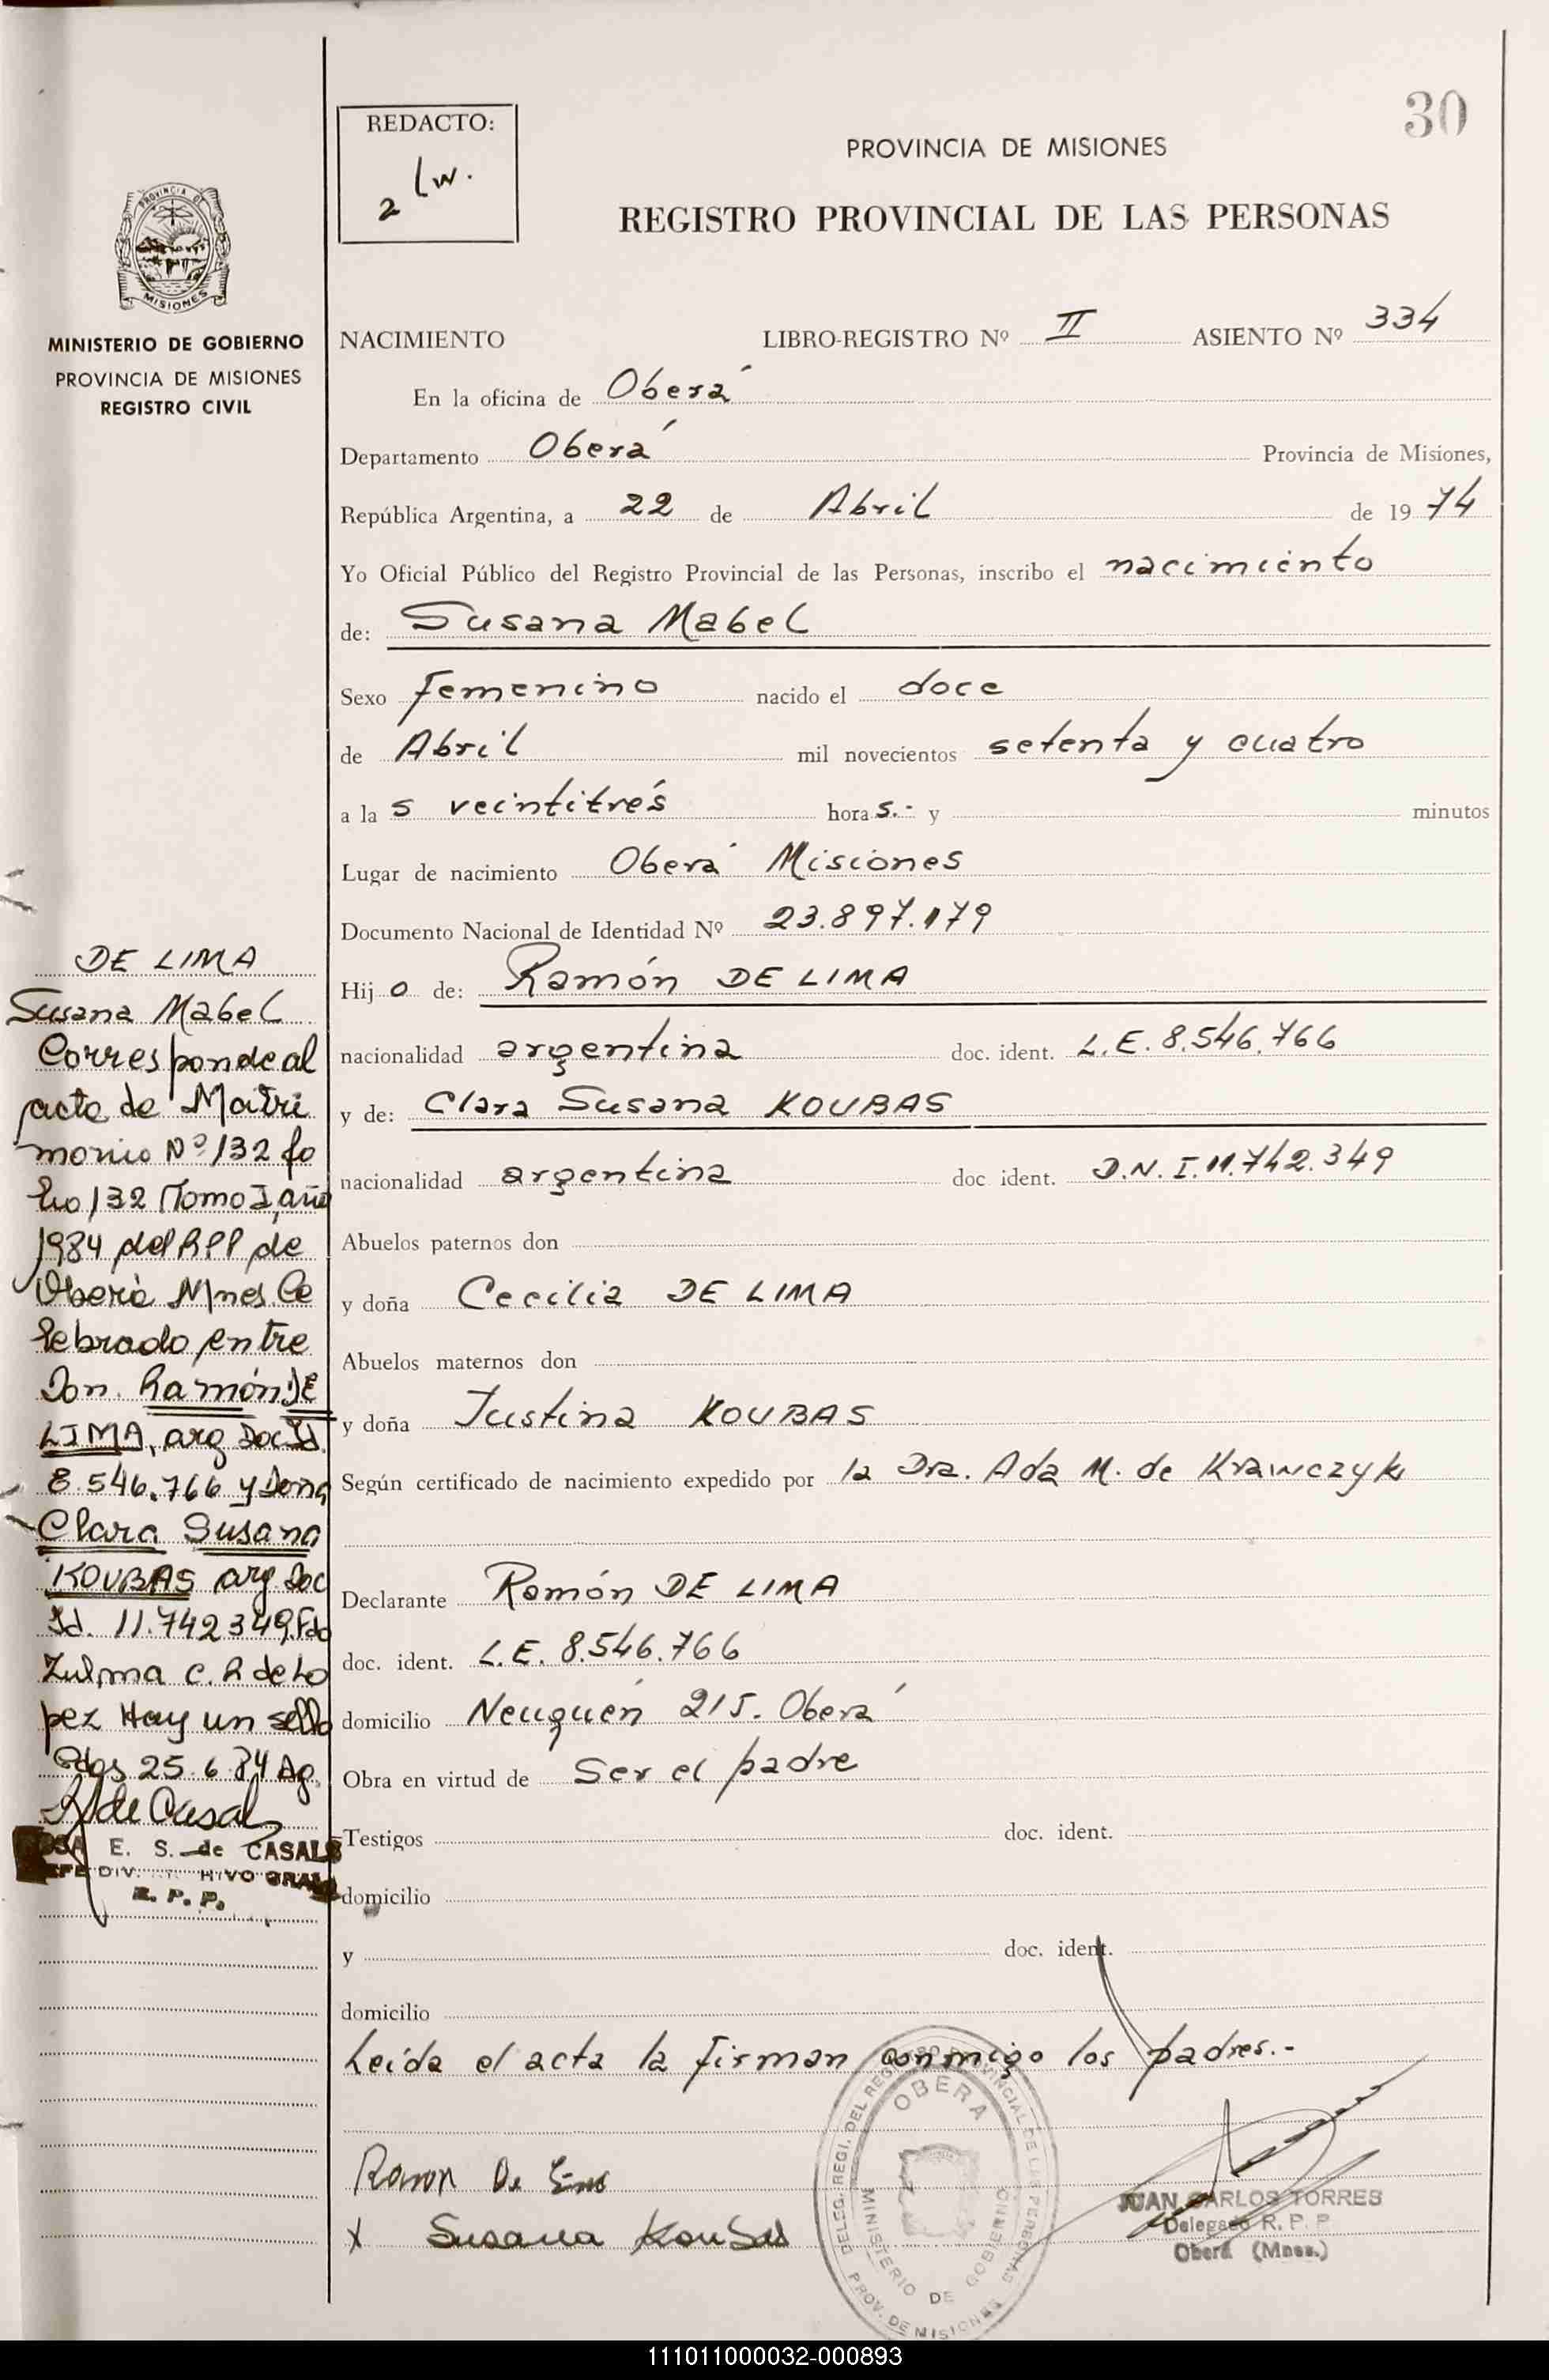 30
REDACTO:
2 Lw.
PROVINCIA DE MISIONES
REGISTRO PROVINCIAL DE LAS PERSONAS
PROVINCIA DE
MISIONES
MINISTERIO DE GOBIERNO
PROVINCIA DE MISIONES
REGISTRO CIVIL
NACIMIENTO LIBRO-REGISTRO Nº II ASIENTO Nº 334
En la oficina de Oberá
Departamento Oberá Provincia de Misiones,
República Argentina, a 22 de Abril de 1974
Yo Oficial Público del Registro Provincial de las Personas, inscribo el nacimiento
de: Susana Mabel
Sexo femenino nacido el doce
de Abril mil novecientos setenta y cuatro
a las veintitrés horas.- y minutos
Lugar de nacimiento Oberá Misiones
Documento Nacional de Identidad Nº 23.897.179
Hijo de: Ramón DE LIMA
nacionalidad argentina doc. ident. L.E. 8.546.766
y de: Clara Susana KOUBAS
nacionalidad argentina doc ident. D.N.I. 11.742.349
Abuelos paternos don
y doña Cecilia DE LIMA
Abuelos maternos don
y doña Justina KOUBAS
Según certificado de nacimiento expedido por la Dra. Ada M. de Krawczyk
Declarante Ramón DE LIMA
doc. ident. L.E. 8.546.766
domicilio Neuquén 215. Oberá
Obra en virtud de Ser el padre
Testigos doc. ident.
domicilio
y doc. ident.
domicilio
Leída el acta la firman conmigo los padres.-
Ramon De Lima
x Susana Koubas
DELEG. REGI. DEL REGISTRO PROVINCIAL DE LAS PERSONAS
OBERA
MINISTERIO DE GOBIERNO
PROV. DE MISIONES
JUAN CARLOS TORRES
Delegado R. P. P.
Oberá (Mnes.)
DE LIMA
Susana Mabel
Corresponde al
acta de Matri
monio Nº 132 fo
lio 132 Tomo I, año
1984 del RPP de
Oberá Mnes. Ce
lebrado entre
Don. Ramón DE
LIMA, arg Doc Id.
8.546.766 y Dona
Clara Susana
KOUBAS arg. Doc
Id. 11.742349. Fdo
Zulma C. R de Lo
pez Hay un sello
Pdas 25.6.84 Ag.
R de Casals
E. S. de CASALS
DIV. GRAL
R. P. P.
111011000032-000893